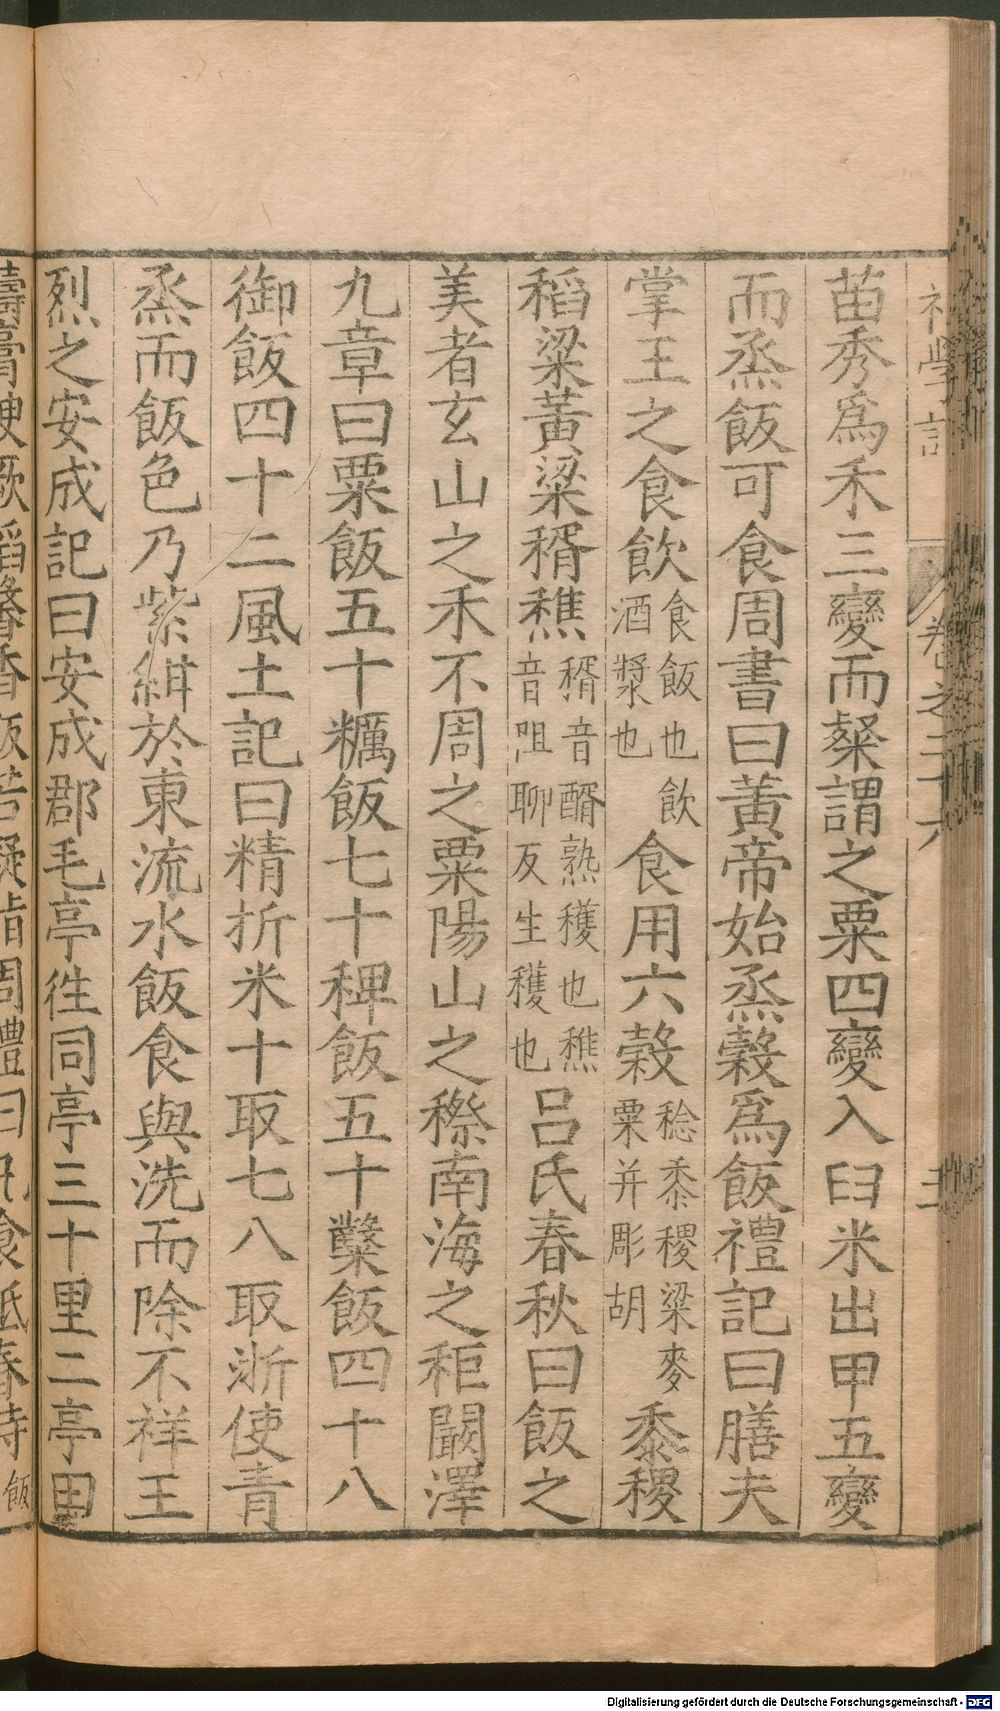 初學記 卷之二十六
苗秀爲禾三變而粲謂之粟四變入臼米出甲五變
而烝飯可食周書曰黃帝始烝穀爲飯禮記曰膳夫
掌王之食飲食飯也飲酒漿也食用六穀稔黍稷梁麥粟并彫胡黍稷
稻粱黃粱稰穛稰音醑熟穫也穛音咀聊反生穫也呂氏春秋曰飯之
美者玄山之禾不周之粟陽山之穄南海之秬闞澤
九章曰粟飯五十糲飯七十稗飯五十糳飯四十八
御飯四十二風土記曰精折米十取七八取淅使青
烝而飯色乃紫紺於東流水飯食與洗而除不祥王
烈之安成記曰安成郡毛亭徃同亭三十里二亭田
疇膏腴厥稻馨香飯若凝脂周禮曰凡食眡春時飯
Digitalisierung gefördert durch die Deutsche Forschungsgemeinschaft - DFG